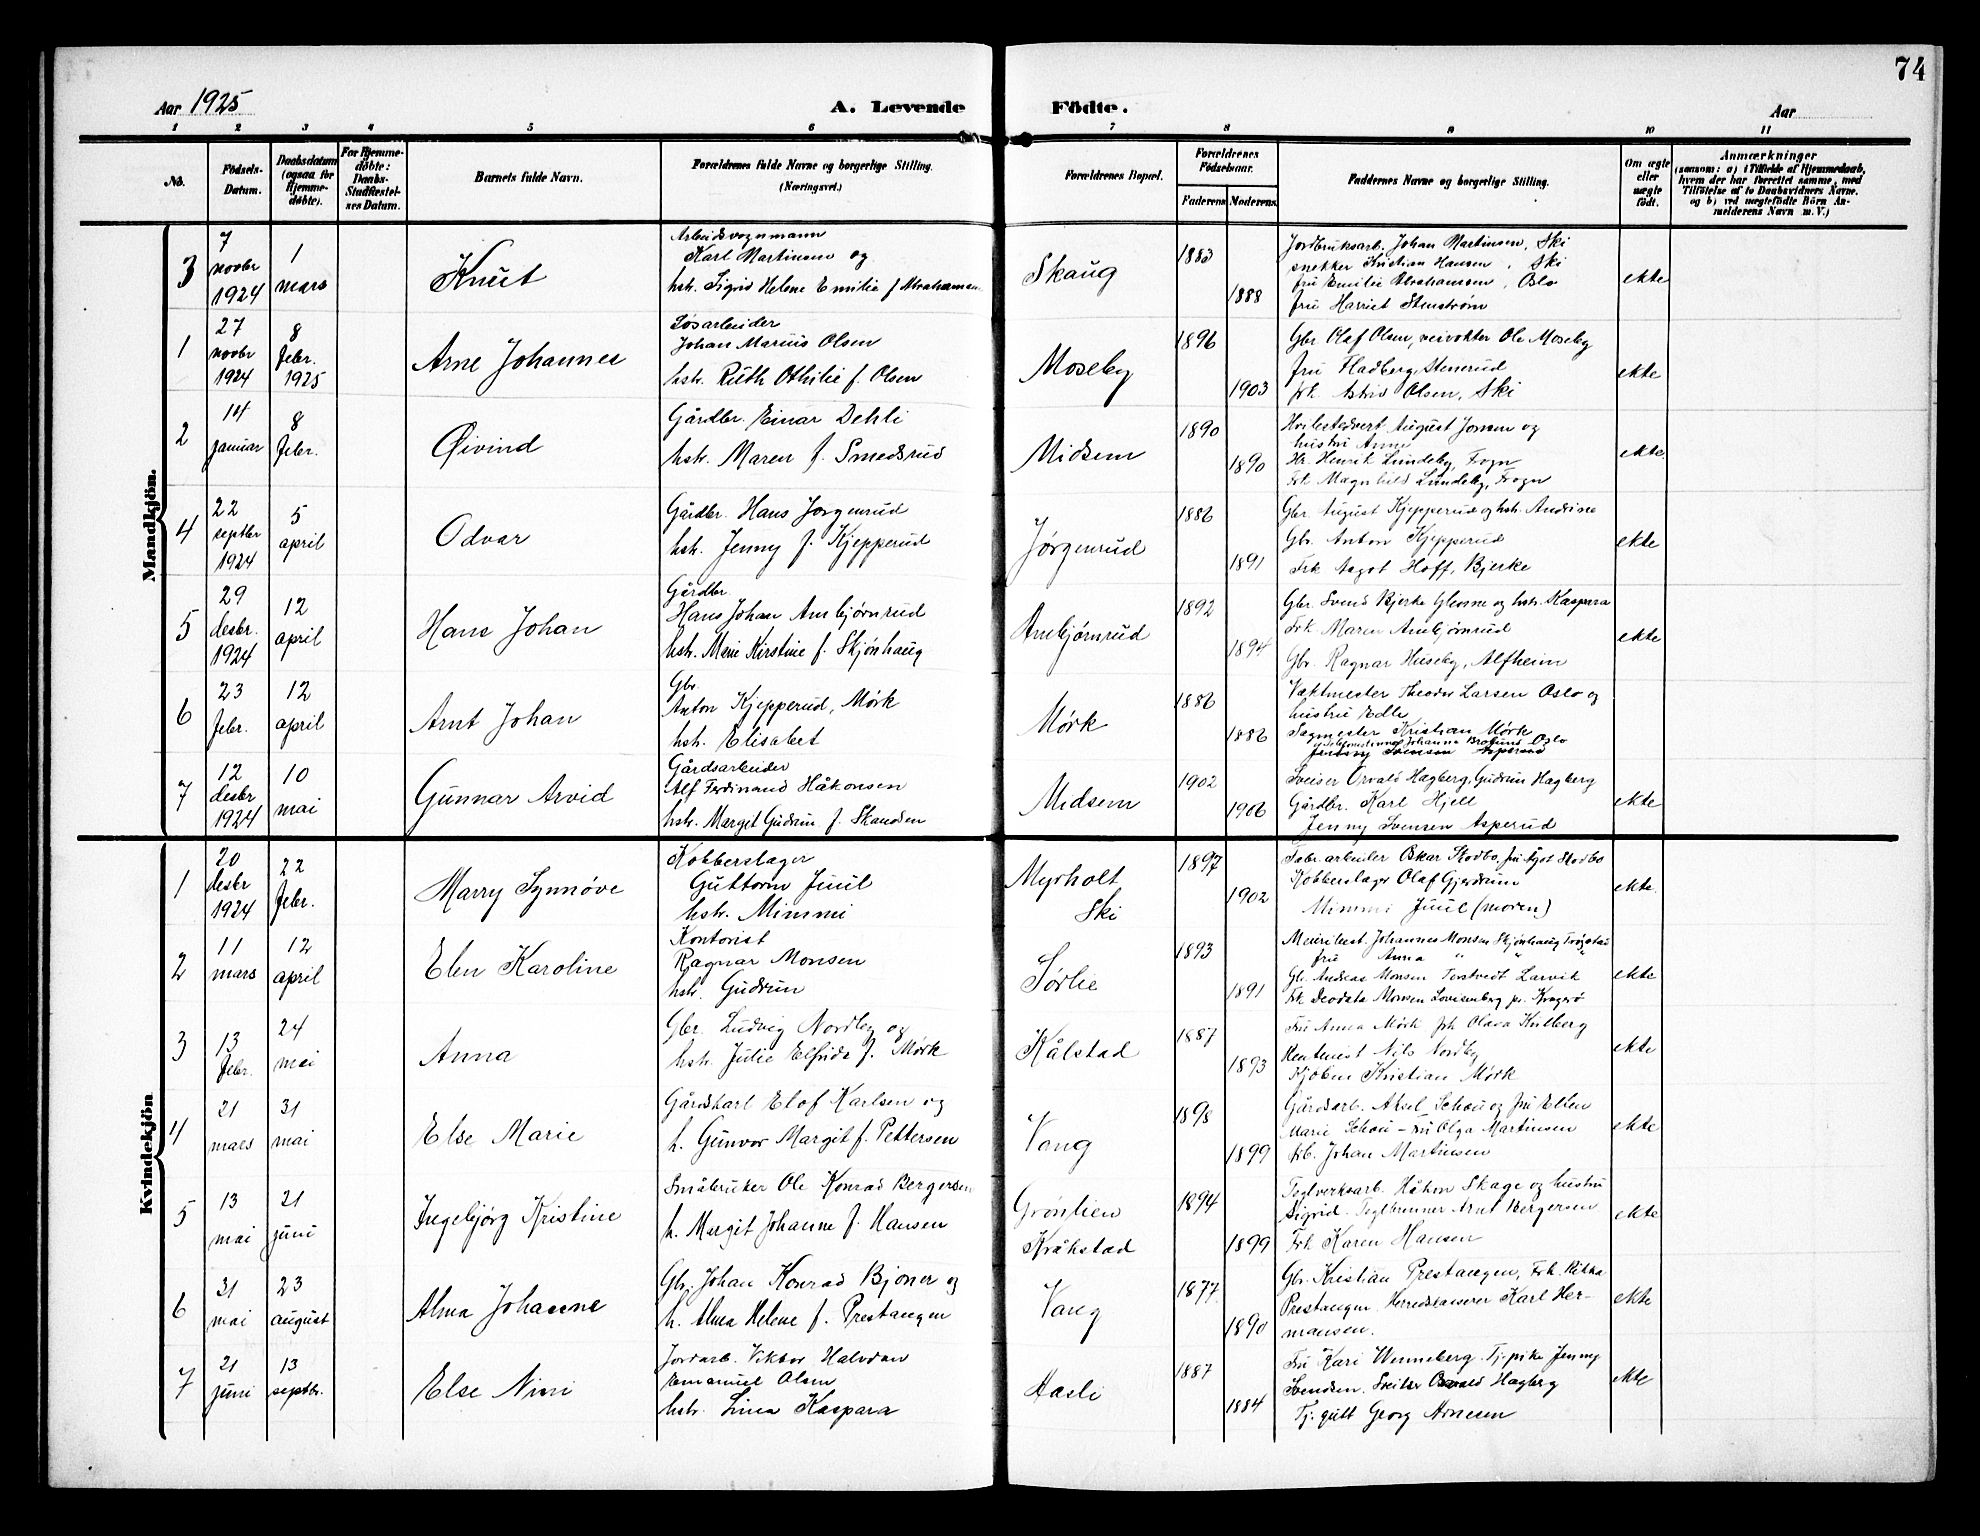 74
Aar 1925
A. Levende Födte.
Aar
1 2 3 4 5 6 7 8 9 10 11
No.
Födsels-Datum.
Daabsdatum (ogsaa for Hjemme-döbte).
For Hjemme-döbte: Daabs-Stadfæstelses Datum.
Barnets fulde Navn.
Forældrenes fulde Navne og borgerlige Stilling. (Næringsvei.)
Forældrenes Bopæl.
Forældrenes Födselsaar.
Faderens Moderens
Faddernes Navne og borgerlige Stilling.
Om ægte eller uægte födt.
Anmærkninger
(saasom: a) i Tilfælde af Hjemmedaab, hvem der har forrettet samme, med Tilföielse af to Daabsvidners Navne. og b) ved uægtefödte Börn Anmelderens Navn m. V.)
Mandkjön.
3
7 novbr 1924
1 mars
Knut
Arbeidsvognmann
Karl Martinsen og
hstr. Sigrid Helene Emilie f. Abrahamsen
Skaug
1883
1888
Jordbruksarb. Johan Martinsen, Ski
snekker Kristian Hansen, Ski
fru Emilie Abrahamsen, Oslo
fru Harriet Stenstrøm
ekte
1
27 novbr 1924
8 febr. 1925
Arne Johannes
Løsarbeider
Johan Marius Olsen
hstr. Ruth Othilie f. Olsen
Moseby
1896
1903
Gbr Olaf Olsen, veivokter Ole Moseby
fru Hadberg, Stenerud
frk. Astrid Olsen, Ski
ekte
2
14 januar
8 febr.
Øivind
Gårdbr. Einar Dehli
hstr. Maren f. Smedsrud
Midsem
1890
1890
August Jensen og
hustru Anne
Hr. Henrik Lundeby, Frogn
Frk. Magnhild Lundeby, Frogn
ekte.
4
22 septbr 1924
5 april
Odvar
Gårdbr. Hans Jørgenrud
hstr. Jenny f. Kjepperud
Jørgenrud
1886
1891
Gbr. August Kjepperud og hstr. Andrine
Gbr. Anton Kjepperud
Frk Aagot Hoff, Bjerke
ekte
5
29 desbr. 1924
12 april
Hans Johan
Gårdbr.
Hans Johan Arnbjørnrud
hstr. Meni Kirstine f. Skjønhaug
Arnbjørnrud
1892
1894
Gbr. Svend Bjerke Glenne og hstr. Kaspara
Frk. Maren Arnbjørnrud
Gbr. Ragnar Huseby, Alfheim
ekte
6
23 febr.
12 april
Arnt Johan
Gbr.
Anton Kjepperud, Mørk
hstr. Elisabet
Mørk
1886
1886
Vaktmester Theodor Larsen Oslo og
hustru Edle
Sagmester Kristian Mørk
Johanna Oslo
ekte
7
12 desbr 1924
10 mai
Gunnar Arvid
Gårdsarbeider
Alf Ferdinand Håkonsen
hstr. Margit Gudrun f. Skauden
Midsem
1902
1906
Sveiser Orvald Hagberg, Gudrun Hagberg
Gårdbr. Karl Hjell
Jenny Svensen Asperud
ekte
Kvindekjön
1
20 desbr 1924
22 febr.
Marry Synnøve
Kobberslager
Guttorm Juul
hstr. Mimmi
Myrholt
Ski
1897
1902
Fabr.arbeider Oskar Stodbo, fru Stodbo
Kobberslager Olaf Gjerdrum
Mimmi Juul (moren)
ekte.
2
11 mars
12 april
Elen Karoline
Kontorist
Ragnar Monsen
hstr. Gudrun
Sørlie
1893
1891
Meieribest. Johannes Monsen Skjønhaug Trøgstad
fru Anna " "
Gbr. Andreas Monsen Torstvedt Larvik
Frk Deodata Monsen Lovisenberg pr. Kragerø
ekte
3
13 febr.
24 mai
Anna
Gbr. Ludvig Nordby og
hstr. Julie Elfrida f. Mørk
Kålstad
1887
1893
Fru Anna Mørk frk Olava Kulberg
Rentenist Nils Nordby
Kjøbm Kristian Mørk
ekte
4
21 mars
31 mai
Else Marie
Gårdskarl Elof Karlsen og
h. Gunvor Margit f. Pettersen
Vang
1898
1899
Gårdsarb. Aksel Schou og fru Ellen
Marie Schou - Fru Olga Martinsen
arb. Johan Martinsen
ekte
5
13 mai
21 juni
Ingebjørg Kristine
Småbruker Ole Konrad Bergersen
h. Margit Johanne f. Hansen
Grønlien
Kråkstad
1894
1899
Teglverksarb. Håkon Skage og hustru
Sigrid. Teglbrenner Arnt Bergersen
Frk Karen Hansen
ekte
6
31 mai
23 august
Alma Johanne
Gbr. Johan Konrad Bjoner og
h. Alma Helene f. Prestangen
Vang
1877
1890
Gbr. Kristian Prestangen, Frk. Rikka
Prestangen. Herredskasserer Karl Her-
mansen.
ekte
7
21 juni
13 septbr.
Else Nini
Jordarb. Viktor Halvdan
Emanuel Olsen
hstr. Lina Kaspara
Aasli
1887
1884
Fru Kari Wenneberg. Tj.pike Jenny
Svendsen. Sveitser Osvald Hagberg
Tj.gutt Georg Arnesen
ekte